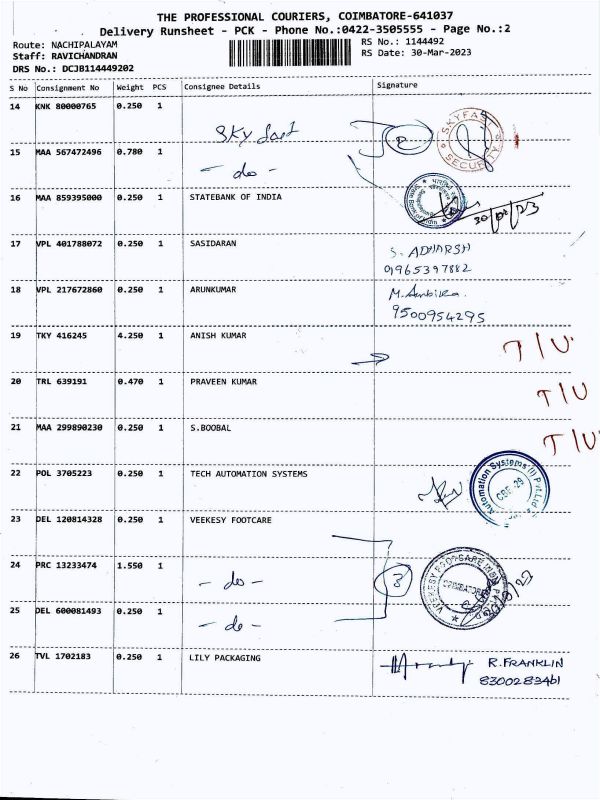 THE PROFESSIONAL COURIERS, COIMBATORE-641037
Delivery Runsheet - PCK - Phone No.:0422-3505555 - Page No.:2
Route: NACHIPALAYAM RS No.: 1144492
Staff: RAVICHANDRAN RS Date: 30-Mar-2023
DRS No.: DCJB114449202
S No Consignment No Weight PCS Consignee Details Signature
14 KNK 80000765 0.250 1
2 SKYFAS SECURITY
15 MAA 567472496 0.780 1
- do -
16 MAA 859395000 0.250 1 STATEBANK OF INDIA
17 VPL 401788072 0.250 1 SASIDARAN S. ADHARSH
01965397882
18 VPL 217672860 0.250 1 ARUNKUMAR M. Ambika.
9500954295
19 TKY 416245 4.250 1 ANISH KUMAR T/U
20 TRL 639191 0.470 1 PRAVEEN KUMAR T/U
21 MAA 299890230 0.250 1 S.BOOBAL T/U
22 POL 3705223 0.250 1 TECH AUTOMATION SYSTEMS Automation Systems (I) Pvt.Ltd
23 DEL 120814328 0.250 1 VEEKESY FOOTCARE
24 PRC 13233474 1.550 1
- do - 3 COIMBATORE
25 DEL 600081493 0.250 1
- do -
26 TVL 1702183 0.250 1 LILY PACKAGING R. FRANKLIN
8300283461